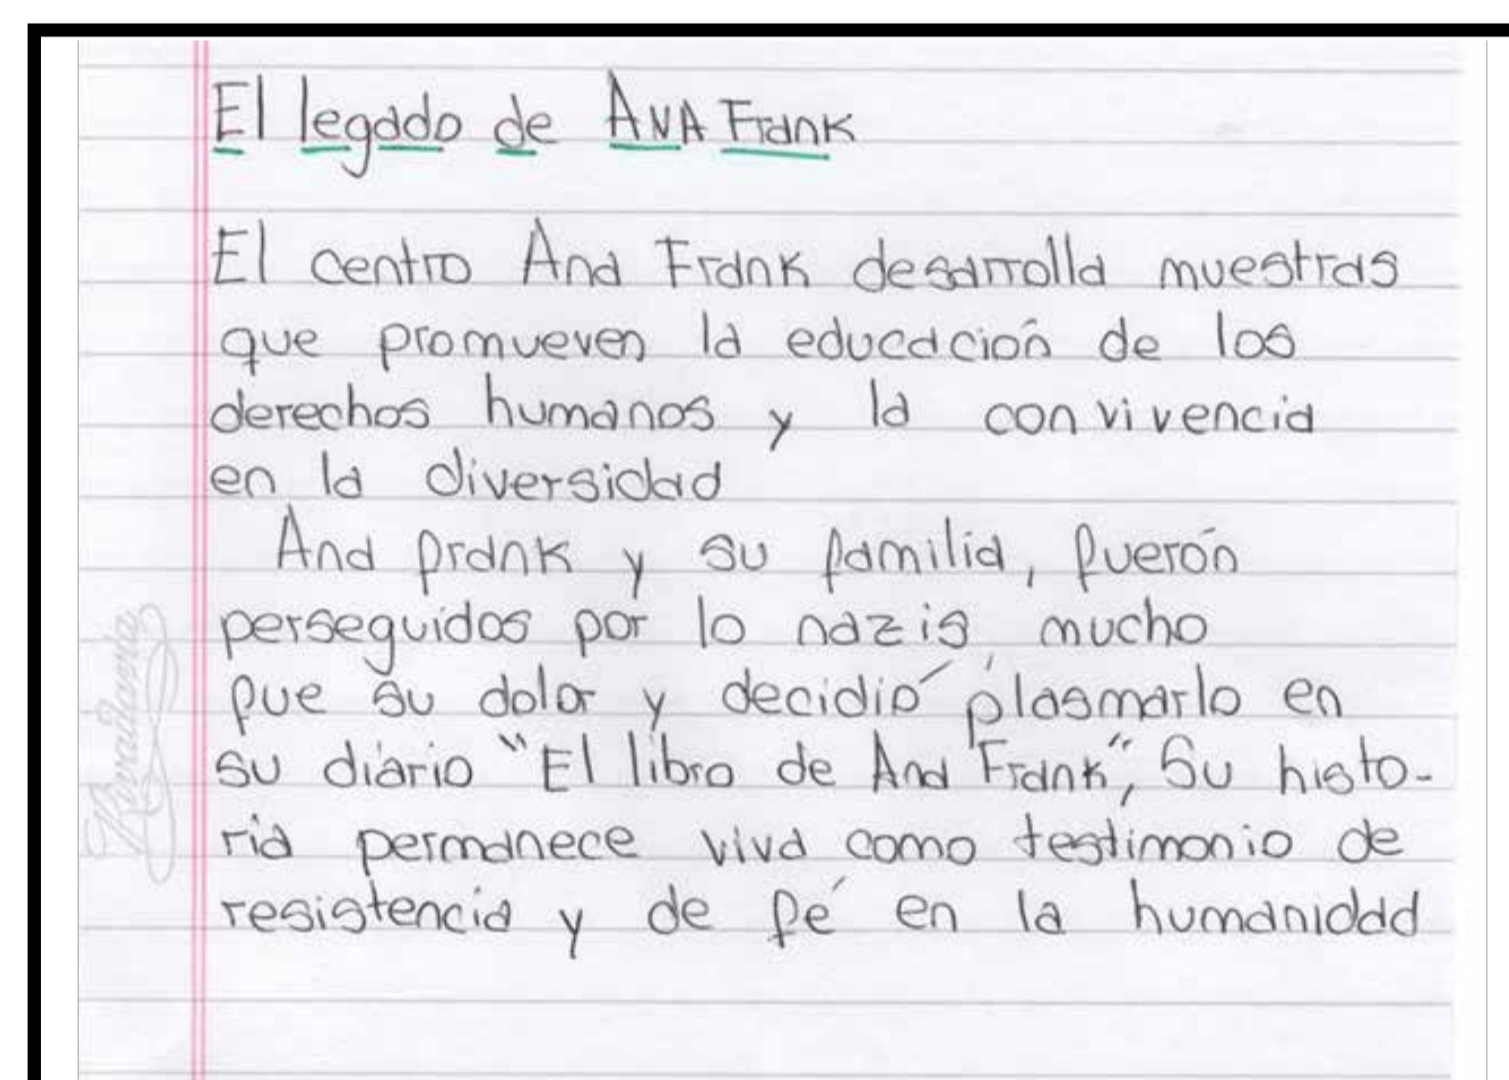 El legado de ANA Frank
El centro Ana Frank desarrolla muestras
que promueven la educación de los
derechos humanos y la convivencia
en la diversidad
Ana frank y su familia, fuerón
perseguidos por lo nazis, mucho
fue su dolor y decidió plasmarlo en
su diario "El libro de Ana Frank", Su histo-
ria permanece viva como testimonio de
resistencia y de fé en la humanidad
Rivadavia